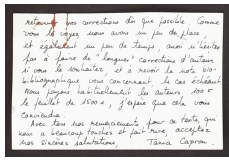 retourner vos corrections dès que possible. Comme
vous le voyez nous avons un peu de place,
et également un peu de temps, donc n'hésitez
pas à faire de "longues" corrections d'auteur
si vous le souhaitez et à revoir la note bio-
bibliographique vous concernant le cas échéant.
Nous payons habituellement les auteurs, 100F
le feuillet de 1500s, j'espère que cela vous
conviendra.
Avec tous nos remerciements pour ce texte, qui
nous a beaucoup touchés et fait rire, acceptez
nos sincères salutations, Tania Capron.